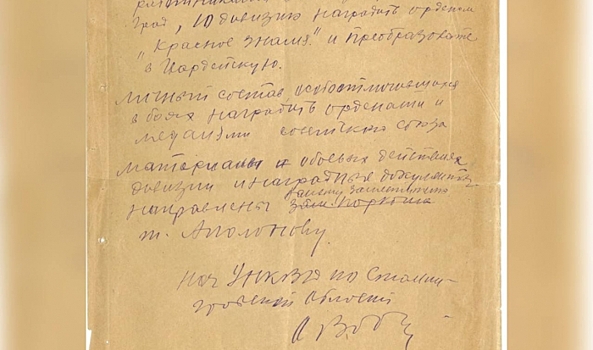 град, 10 дивизию наградить орденом
„Красное знамя" и преобразовать
в Гвардейскую.
личный состав особоотличившихся
в боях наградить орденами и
медалями советского союза
материалы о боевых действиях
дивизии и наградные документы
вашему заместителю
направлены
т. Аполонову.
нач УНКВД по Сталин-
градской области